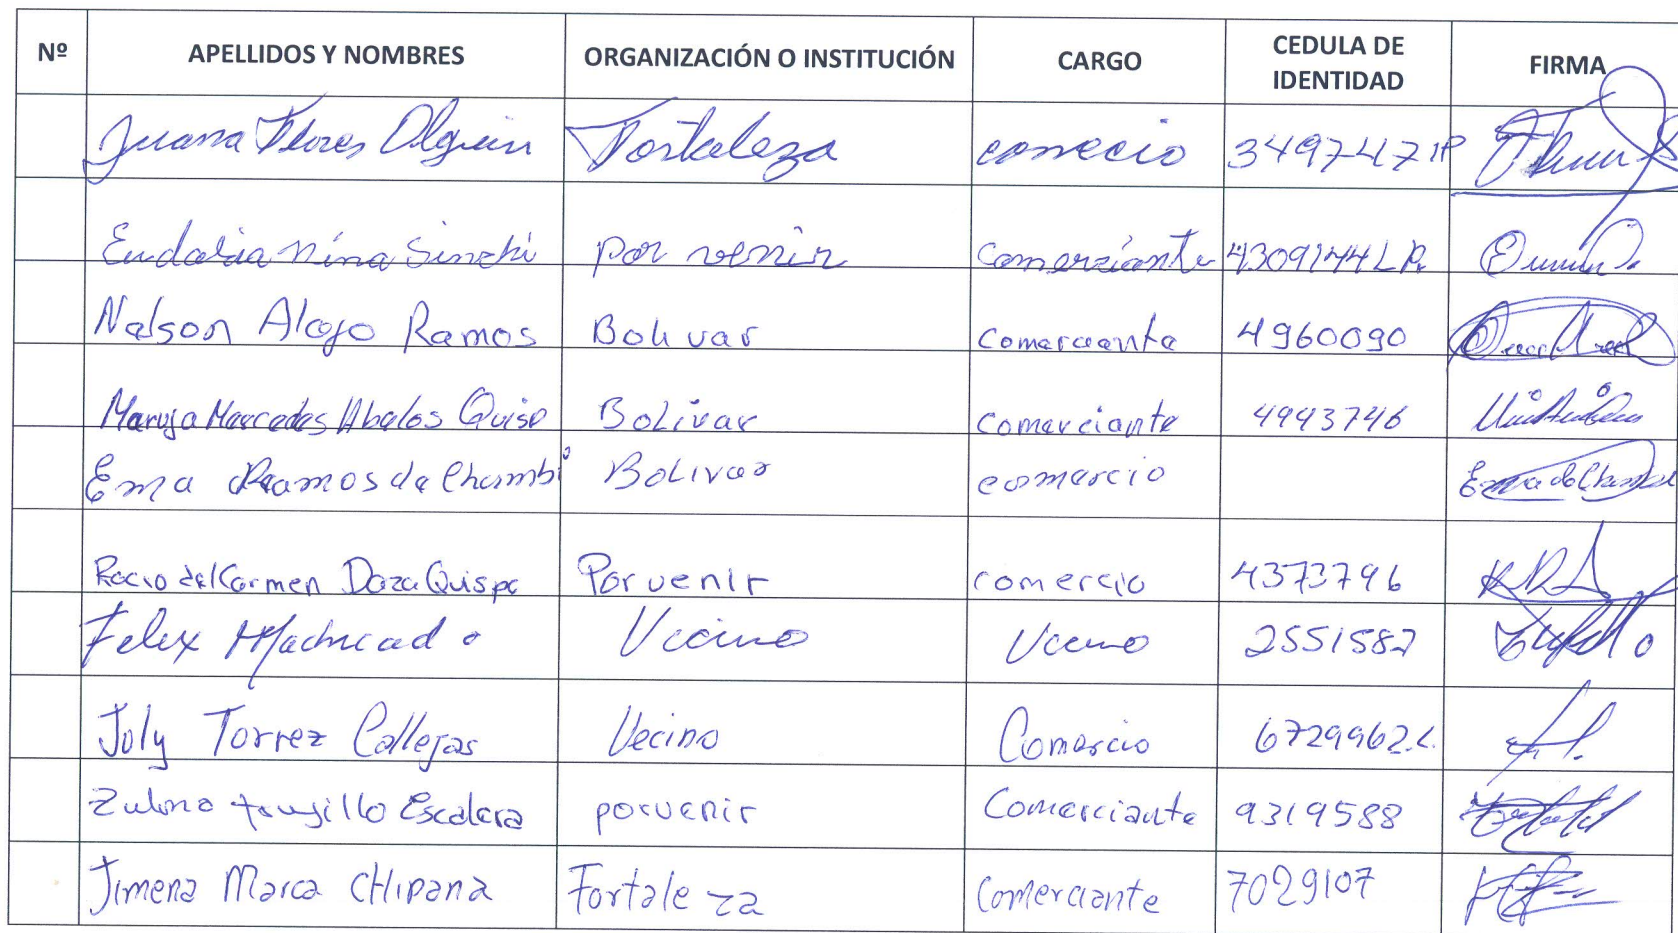 Nº APELLIDOS Y NOMBRES ORGANIZACIÓN O INSTITUCIÓN CARGO CEDULA DE IDENTIDAD FIRMA
Juana Flores Olguin Fortaleza comecio 3497471P
Eudalia Nina Sinchi por venir Comerciante 4309144 LP.
Nelson Alejo Ramos Bolivar Comerciante 4960090
Maruja Mercedes Abalos Quisp Bolivar Comerciante 4943746
Ema Ramos de Chambi Bolivar comercio Ema de Chambi
Rocio del Carmen Daza Quispe Porvenir comercio 4373796
Felix Machicado Vecino Vecino 2551587
Joly Torrez Callejas Vecino Comercio 6729962.L.
Zulma trujillo Escalera porvenir Comerciante 9319588
Jimena Marca CHipana Fortaleza Comerciante 7029107